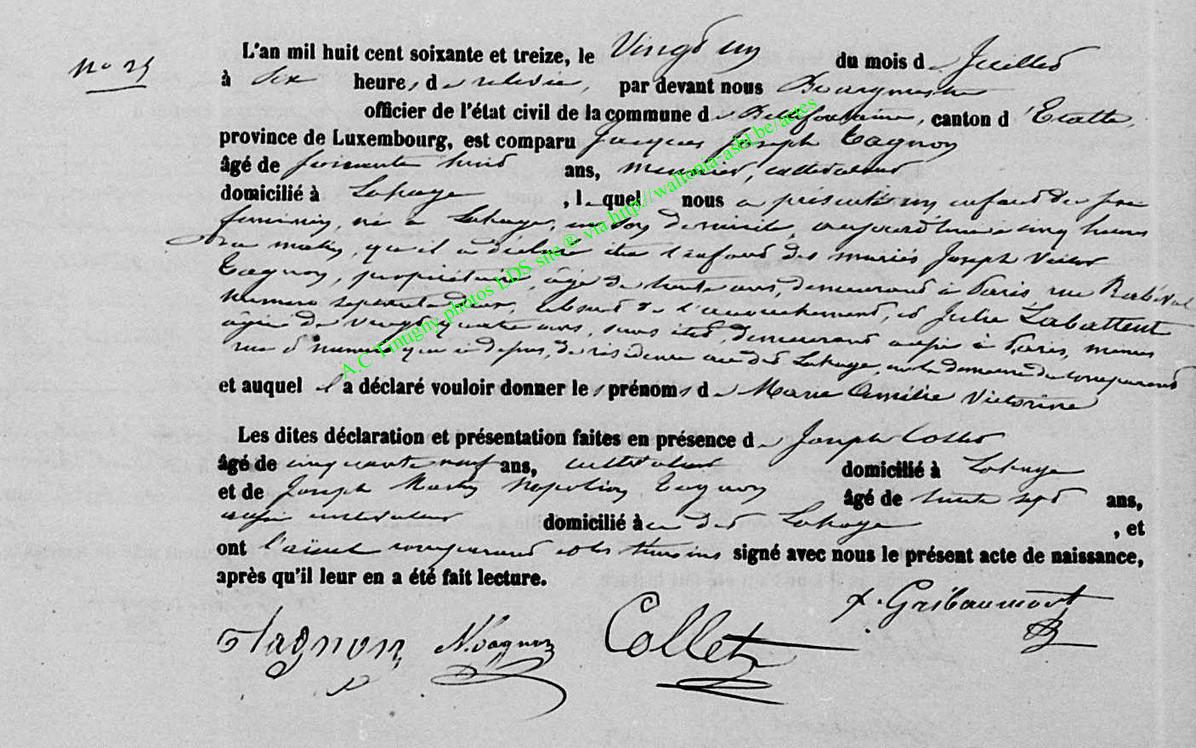 N° 25
L'an mil huit cent soixante et treize, le Vingt un du mois de Juillet
à six heures de relevée, par devant nous Bourgmestre
officier de l'état civil de la commune de Bellefontaine, canton d'Etalle,
province de Luxembourg, est comparu Jacques Joseph Tagnon
âgé de soixante huit ans, meunier, cultivateur
domicilié à Lahage, lequel nous a présenté un enfant du sexe
féminin, né à Lahage, en son domicile, aujourd'hui à cinq heures
du matin, qu'il a déclaré être l'enfant des mariés Joseph Victor
Tagnon, propriétaire, âgé de trente ans, demeurant à Paris, rue
numéro septante deux, absent de l'accouchement, et Julie Labattent
âgée de vingt quatre ans, sans état, demeurant aussi à Paris, mêmes
rue & numéro que ci-dessus, de résidence au dit Lahage, en la demeure du comparant
et auquel il a déclaré vouloir donner les prénoms de Marie Amélie Victorine
Les dites déclaration et présentation faites en présence de Joseph Collet
âgé de cinquante neuf ans, cultivateur domicilié à Lahage
et de Joseph Martin Napoléon Tagnon âgé de trente sept ans,
aussi cultivateur domicilié à au dit Lahage, et
ont l'aïeul comparant et les témoins signé avec nous le présent acte de naissance,
après qu'il leur en a été fait lecture.
Tagnon N. Tagnon Collet Gribaumont
A.C. Tintigny photos LDS site @ via http://wallonia-asbl.be/actes